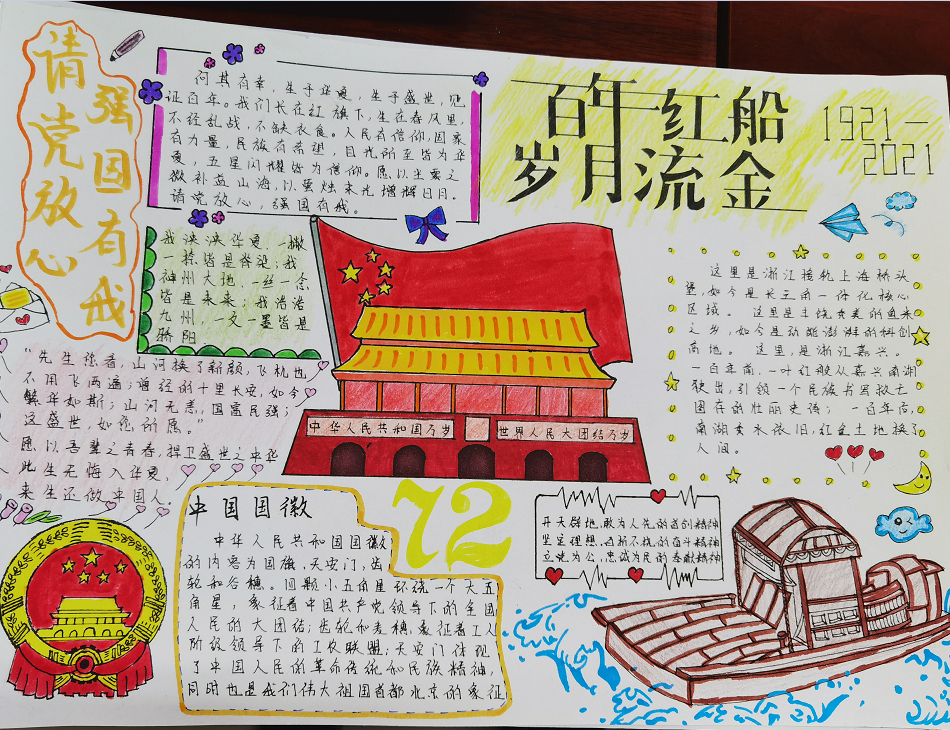 请党放心
强国有我
何其有幸，生于华夏，生于盛世，见
证百年。我们长在红旗下，生在春风里，
不经乱战，不缺衣食。人民有信仰，国家
有力量，民族有希望，目光所至皆为华
夏，五星闪耀皆为信仰。愿以尘雾之
微补益山海，以萤烛末光增辉日月。
请党放心，强国有我。
百年红船
岁月流金
1921—
2021
我泱泱华夏，一撇
一捺皆是脊梁；我
神州大地，一丝一念
皆是未来；我浩浩
九州，一文一墨皆是
骄阳
"先生您看，山河换了新颜，飞机也
不用飞两遍；曾经的十里长安，如今
繁华如斯；山河无恙，国富民强；
这盛世，如您所愿。"
愿以吾辈之青春，捍卫盛世之中华
此生无悔入华夏，
来生还做中国人。
中华人民共和国万岁
世界人民大团结万岁
这里是浙江接轨上海桥头
堡，如今是长三角一体化核心
区域。这里是丰饶秀美的鱼米
之乡，如今是动能澎湃的科创
高地。这里，是浙江嘉兴。
一百年前，一叶红船从嘉兴南湖
驶出，引领一个民族书写救亡
图存的壮丽史诗；一百年后，
南湖秀水依旧，红色土地换了
人间。
72
开天辟地，敢为人先的首创精神
坚定理想，百折不挠的奋斗精神
立党为公，忠诚为民的奉献精神
中国国徽
中华人民共和国国徽
的内容为国旗，天安门，齿
轮和谷穗。四颗小五角星环绕一个大五
角星，象征着中国共产党领导下的全国
人民的大团结；齿轮和麦穗，象征着工人
阶级领导下的工农联盟；天安门体现
了中国人民的革命传统和民族精神，
同时也是我们伟大祖国首都北京的象征